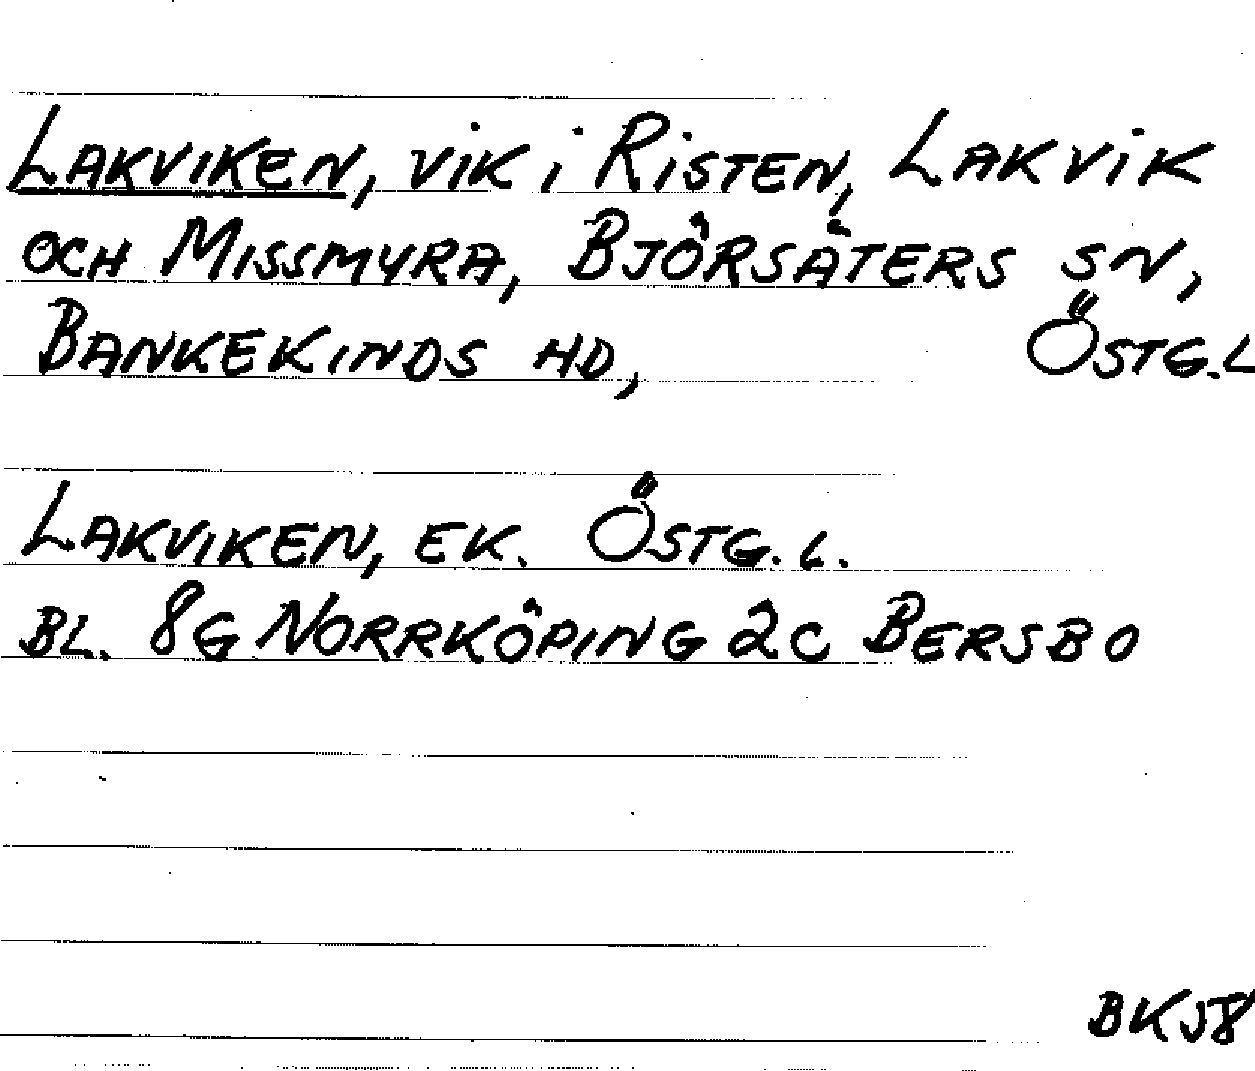 Lakviken, vik i Risten, Lakvik
och Missmyra, Björsäters sn,
Bankekinds hd, Östg.L
Lakviken, ek. Östg.l.
bl. 8G Norrköping 2c Bersbo